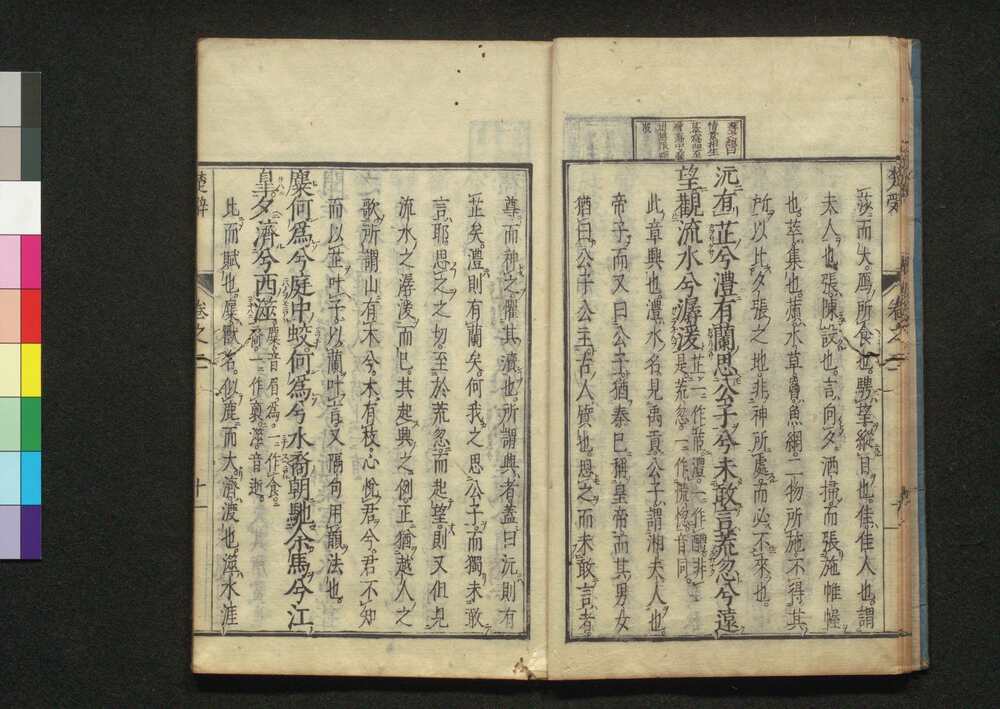 莎而大。鴈所食也。騁望縱目也。佳佳人也。謂
夫人也。張陳設也。言向夕洒掃而張施帷幄
也。萃集也。蘋水草。罾魚網。二物所施不得其
所以比夕張之地。非神所處而必不來也。
沅有芷兮澧有蘭思公子兮未敢言荒忽兮遠
望觀流水兮潺湲 芷一作茝澧一作醴非是荒忽一作慌惚音同
此章興也澧水名見禹貢公子謂湘夫人也。
帝子而又曰公子猶秦已稱皇帝而其男女
猶曰公子公主古人質也。思之而未敢言者。
尊而神之。懼其瀆也。所謂興者蓋曰沅則有
芷矣。澧則有蘭矣。何我之思公子。而獨未敢
言耶。思之之切至於荒忽而起望。則又但見
流水之潺湲而已。其起興之例正猶越人之
歌所謂山有木兮。木有枝。心悅君兮。君不知
而以芷叶子。以蘭叶言又隔句用韻法也。
麋何為兮庭中蛟何為兮水裔朝馳余馬兮江
皐夕濟兮西澨 麋音眉為一作食。裔一作裏澨音逝。
比而賦也。麋獸名。似鹿而大。濟渡也。澨水涯
楚辭
卷之二
十一